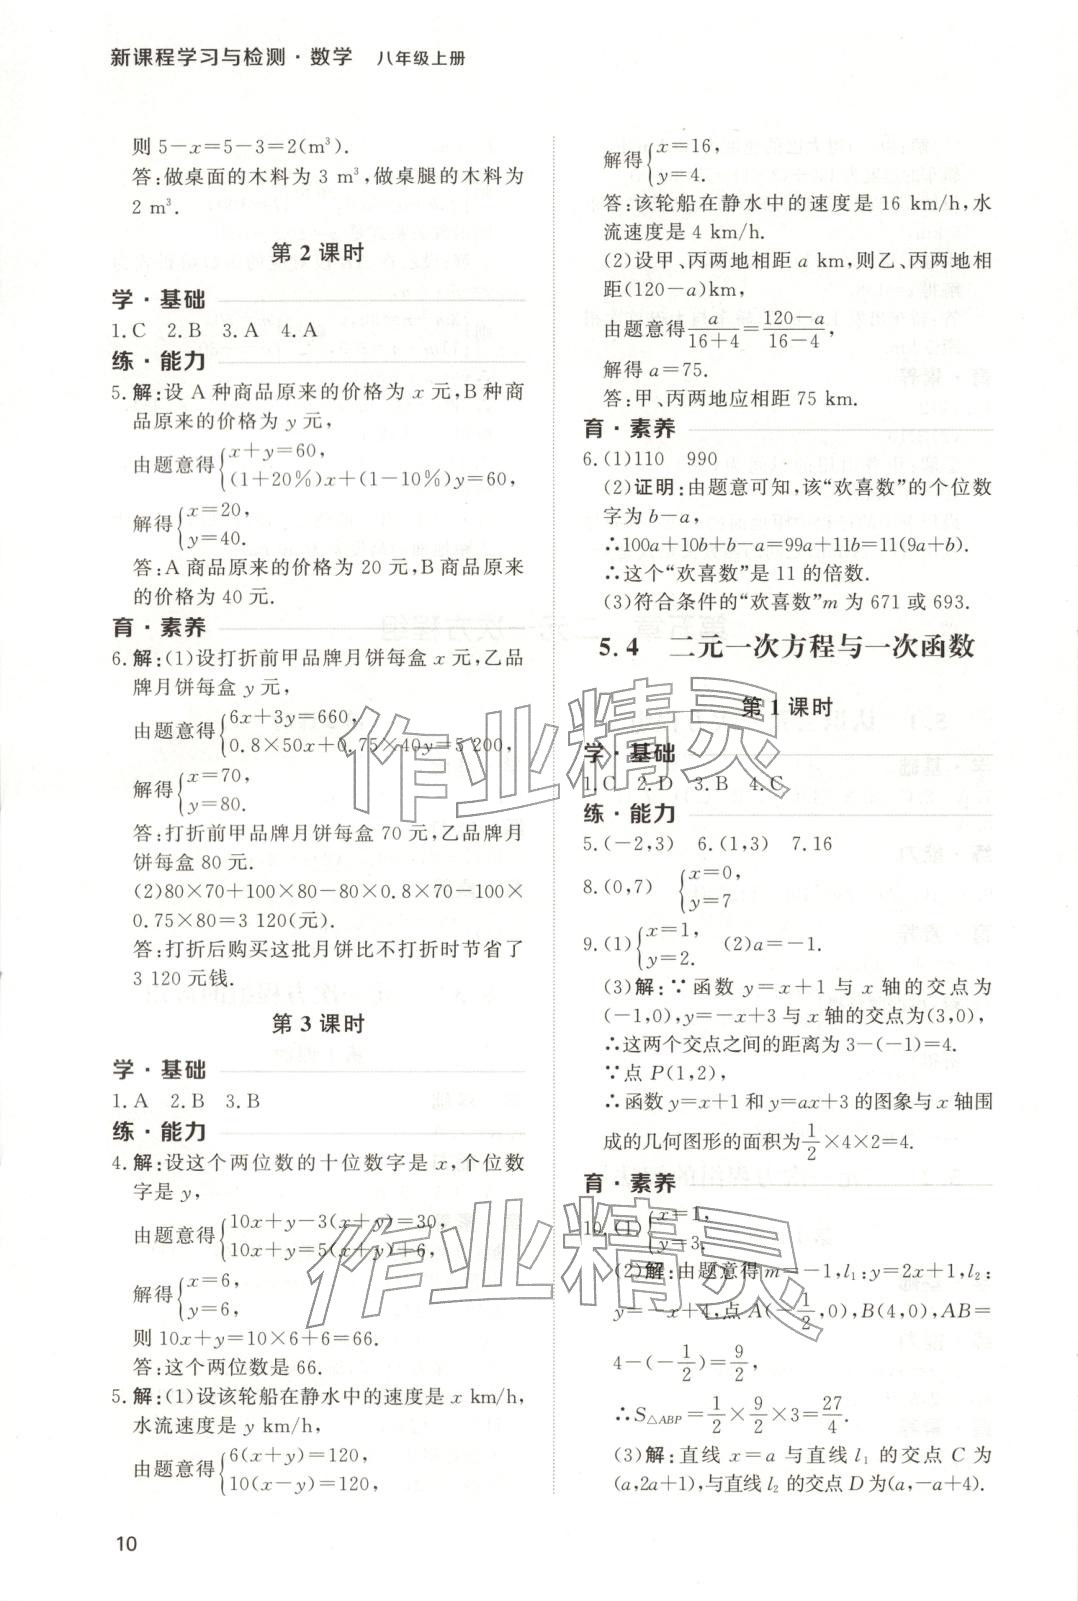 新课程学习与检测·数学 八年级上册
则 5-x=5-3=2(m³).
答:做桌面的木料为 3 m³,做桌腿的木料为
2 m³.
第 2 课时
学·基础
1.C 2.B 3.A 4.A
练·能力
5.解:设 A 种商品原来的价格为 x 元,B 种商
品原来的价格为 y 元,
由题意得{x+y=60,
(1+20%)x+(1-10%)y=60,
解得{x=20,
y=40.
答:A 商品原来的价格为 20 元,B 商品原来
的价格为 40 元.
育·素养
6.解:(1)设打折前甲品牌月饼每盒 x 元,乙品
牌月饼每盒 y 元,
由题意得{6x+3y=660,
0.8×50x+0.75×40y=5 200,
解得{x=70,
y=80.
答:打折前甲品牌月饼每盒 70 元,乙品牌月
饼每盒 80 元.
(2)80×70+100×80-80×0.8×70-100×
0.75×80=3 120(元).
答:打折后购买这批月饼比不打折时节省了
3 120 元钱.
第 3 课时
学·基础
1.A 2.B 3.B
练·能力
4.解:设这个两位数的十位数字是 x,个位数
字是 y,
由题意得{10x+y-3(x+y)=30,
10x+y=5(x+y)+6,
解得{x=6,
y=6,
则 10x+y=10×6+6=66.
答:这个两位数是 66.
5.解:(1)设该轮船在静水中的速度是 x km/h,
水流速度是 y km/h,
由题意得{6(x+y)=120,
10(x-y)=120,
解得{x=16,
y=4.
答:该轮船在静水中的速度是 16 km/h,水
流速度是 4 km/h.
(2)设甲、丙两地相距 a km,则乙、丙两地相
距(120-a)km,
由题意得a/(16+4)=(120-a)/(16-4),
解得 a=75.
答:甲、丙两地应相距 75 km.
育·素养
6.(1)110 990
(2)证明:由题意可知,该“欢喜数”的个位数
字为 b-a,
∴100a+10b+b-a=99a+11b=11(9a+b).
∴这个“欢喜数”是 11 的倍数.
(3)符合条件的“欢喜数”m 为 671 或 693.
5.4 二元一次方程与一次函数
第 1 课时
学·基础
1.C 2.D 3.B 4.C
练·能力
5.(-2,3) 6.(1,3) 7.16
8.(0,7) {x=0,
y=7
9.(1){x=1,
y=2. (2)a=-1.
(3)解:∵函数 y=x+1 与 x 轴的交点为
(-1,0),y=-x+3 与 x 轴的交点为(3,0),
∴这两个交点之间的距离为 3-(-1)=4.
∵点 P(1,2),
∴函数 y=x+1 和 y=ax+3 的图象与 x 轴围
成的几何图形的面积为1/2×4×2=4.
育·素养
10.(1){x=1,
y=3.
(2)解:由题意得 m=-1,l₁:y=2x+1,l₂:
y=-x+4,点 A(-1/2,0),B(4,0),AB=
4-(-1/2)=9/2,
∴S△ABP=1/2×9/2×3=27/4.
(3)解:直线 x=a 与直线 l₁ 的交点 C 为
(a,2a+1),与直线 l₂ 的交点 D 为(a,-a+4).
10
作业精灵
作业精灵